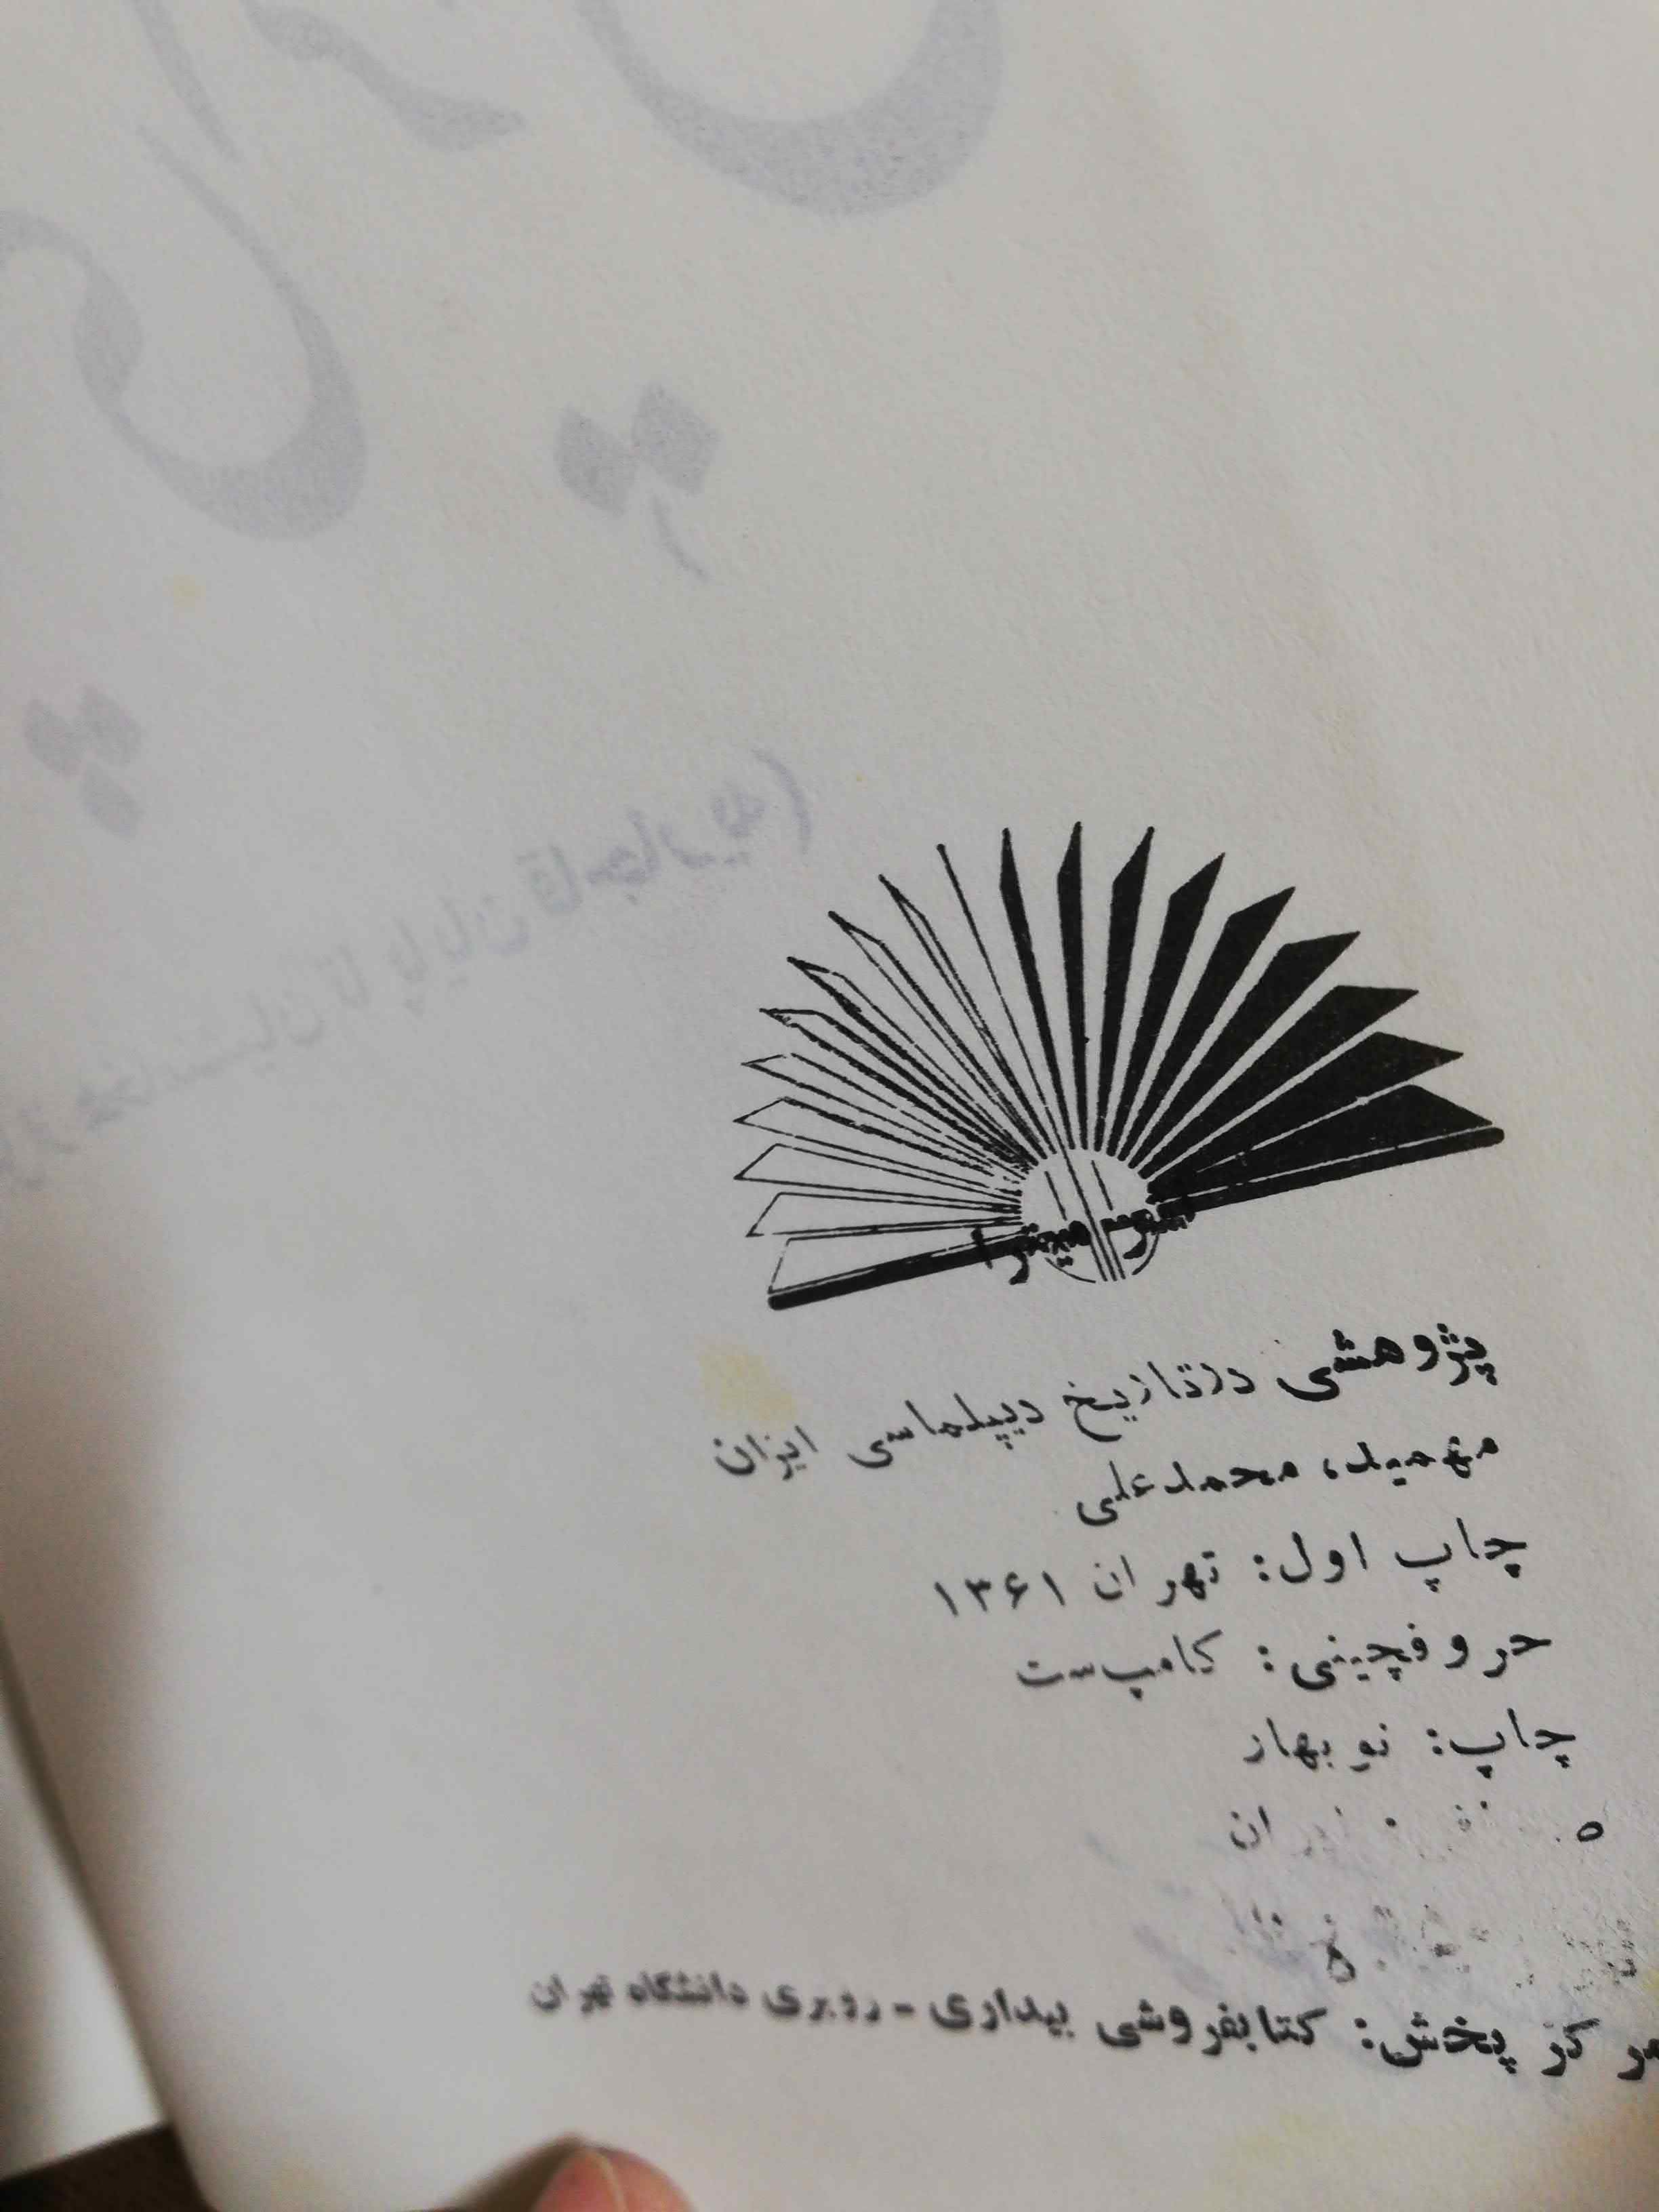 نشر میترا
پژوهشی در تاریخ دیپلماسی ایران
مهمید، محمدعلی
چاپ اول: تهران ۱۳۶۱
حروفچینی: کامپ‌ست
چاپ: نوبهار
مرکز پخش: کتابفروشی بیداری - روبری دانشگاه تهران